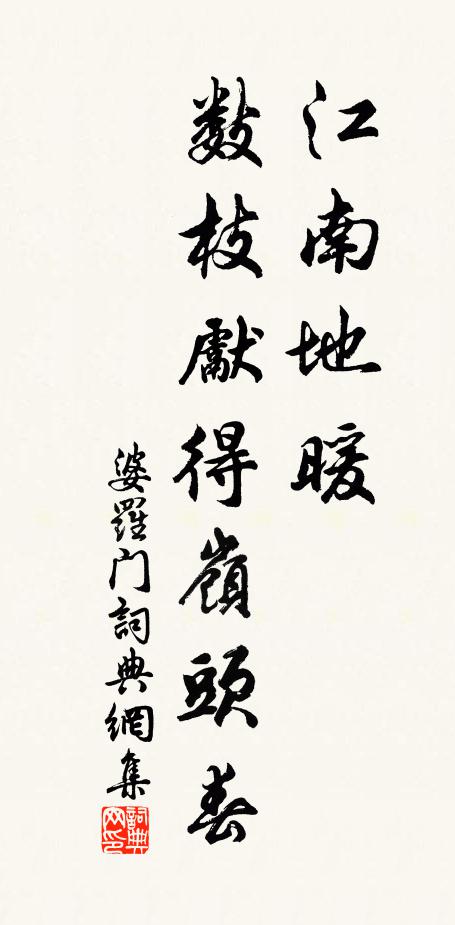 江南地暖
數枝獻得嶺頭春
婆羅門詞典網集
詞典网印